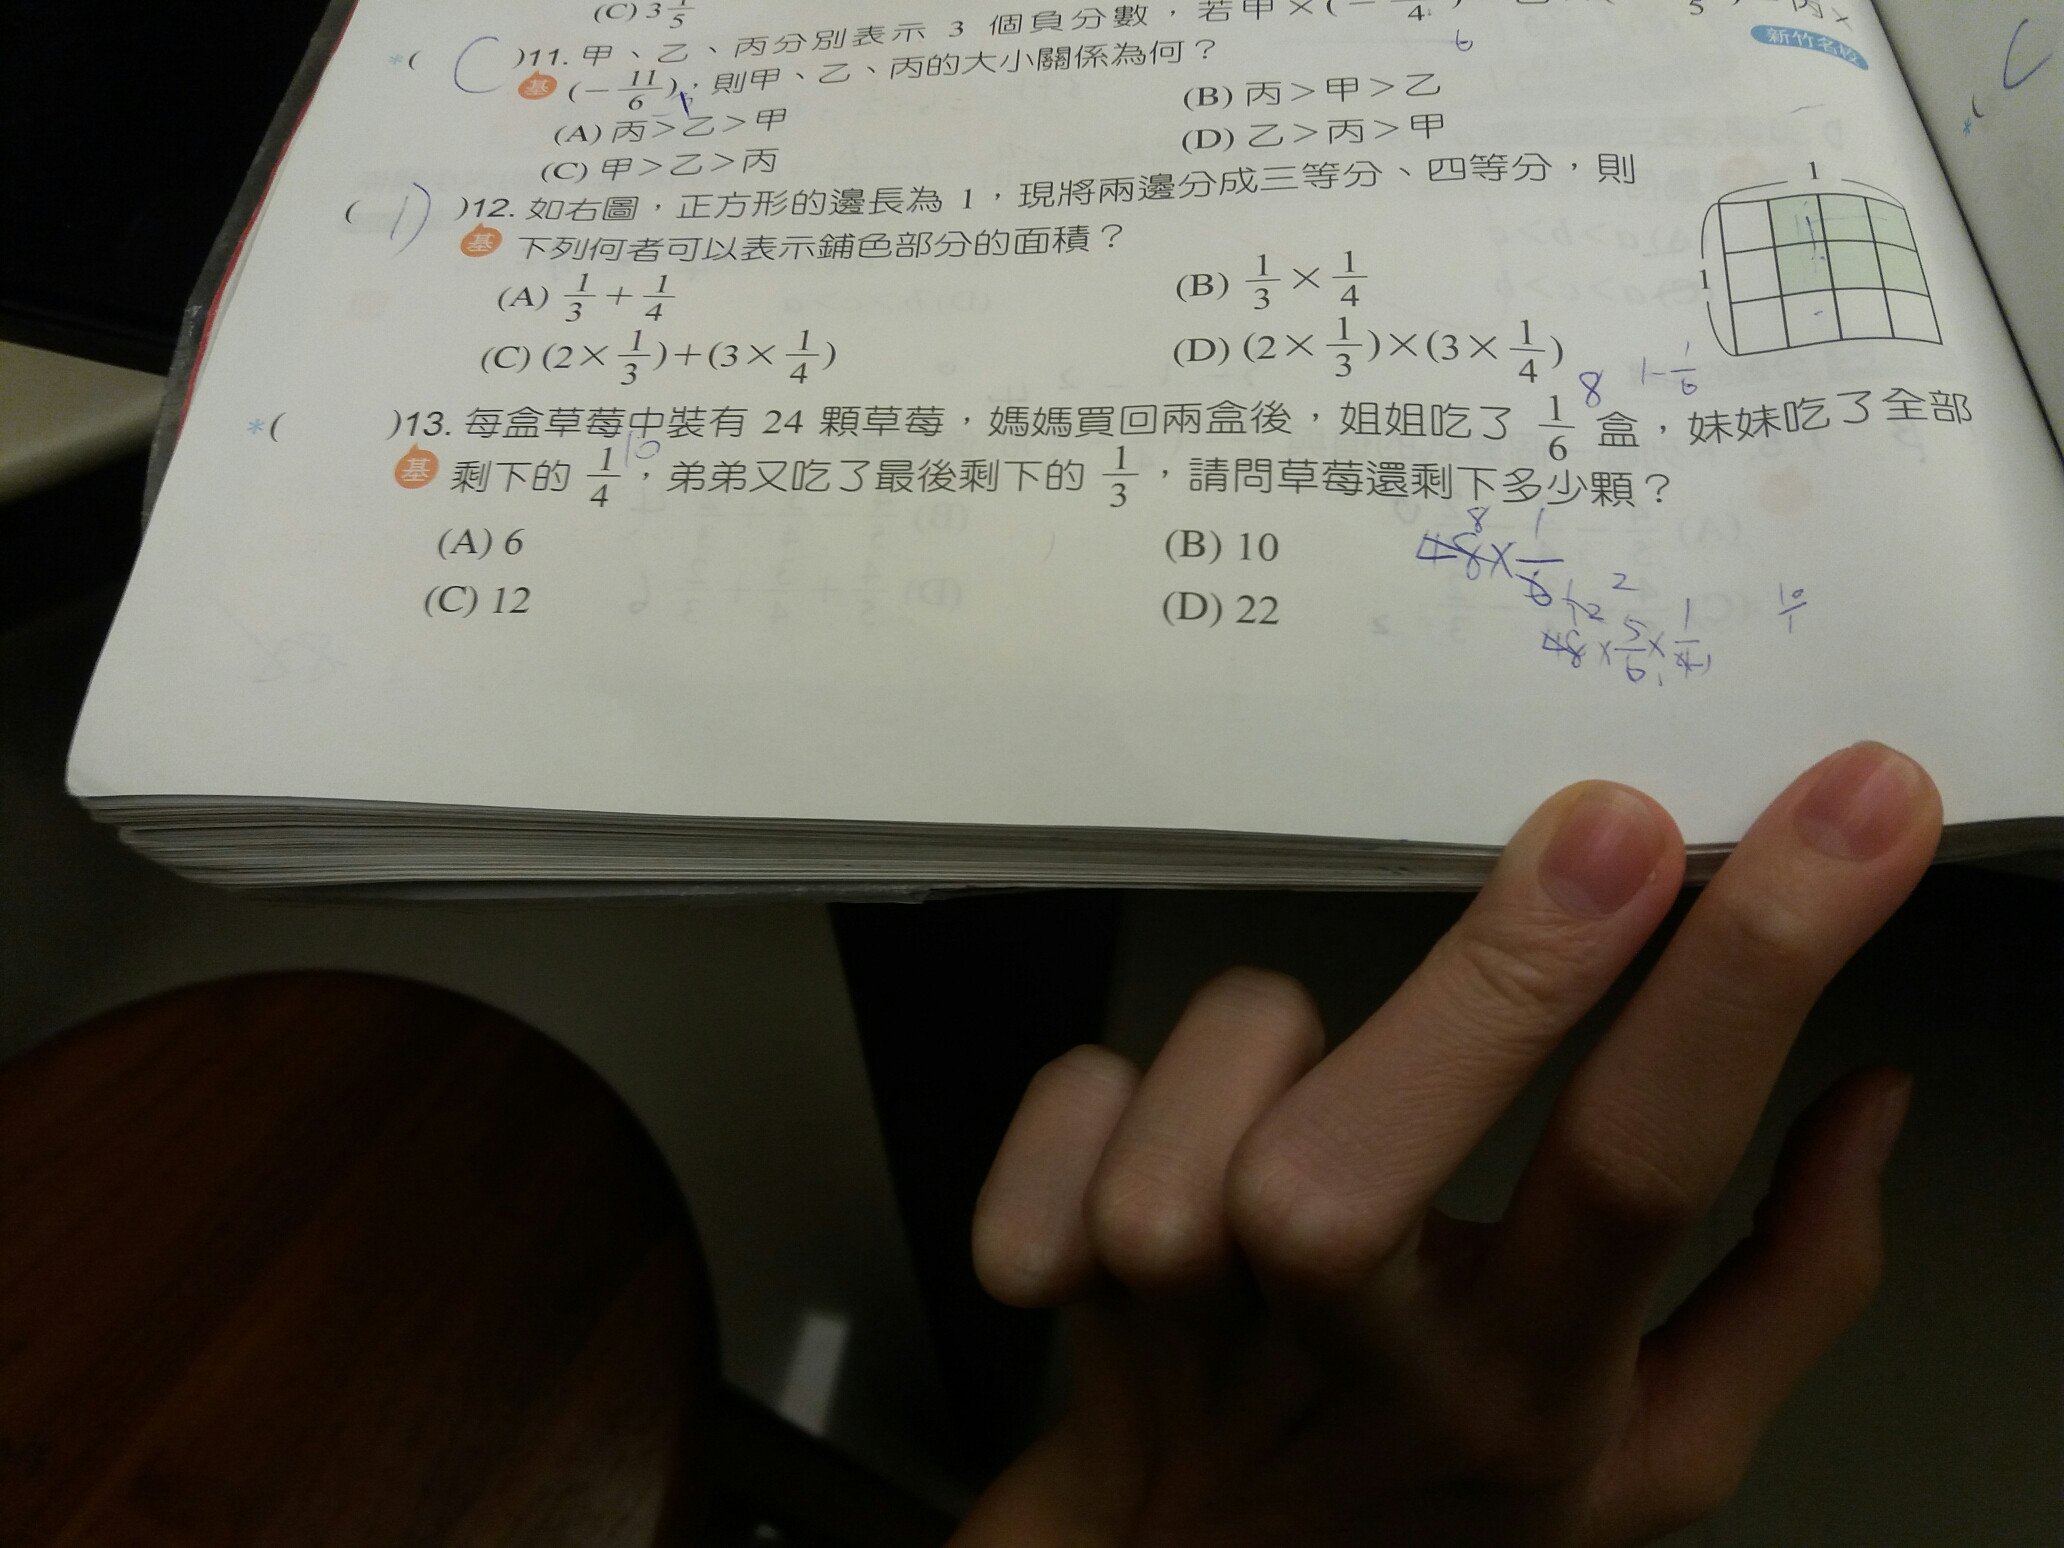 (C) 3 1/5
*( C )11. 甲、乙、丙分別表示 3 個負分數，若甲×(－
4
6
5
丙×
新竹名校
基 (－11/6)，則甲、乙、丙的大小關係為何？
(A) 丙＞乙＞甲 (B) 丙＞甲＞乙
(C) 甲＞乙＞丙 (D) 乙＞丙＞甲
( D )12. 如右圖，正方形的邊長為 1，現將兩邊分成三等分、四等分，則
基 下列何者可以表示鋪色部分的面積？
(A) 1/3＋1/4 (B) 1/3×1/4
(C) (2×1/3)＋(3×1/4) (D) (2×1/3)×(3×1/4)
1
1
8 1-1/6
*( )13. 每盒草莓中裝有 24 顆草莓，媽媽買回兩盒後，姐姐吃了 1/6 盒，妹妹吃了全部
10
基 剩下的 1/4，弟弟又吃了最後剩下的 1/3，請問草莓還剩下多少顆？
(A) 6 (B) 10
(C) 12 (D) 22
8 1
48×1/6
12 2
48×5/6×1/4
10/1